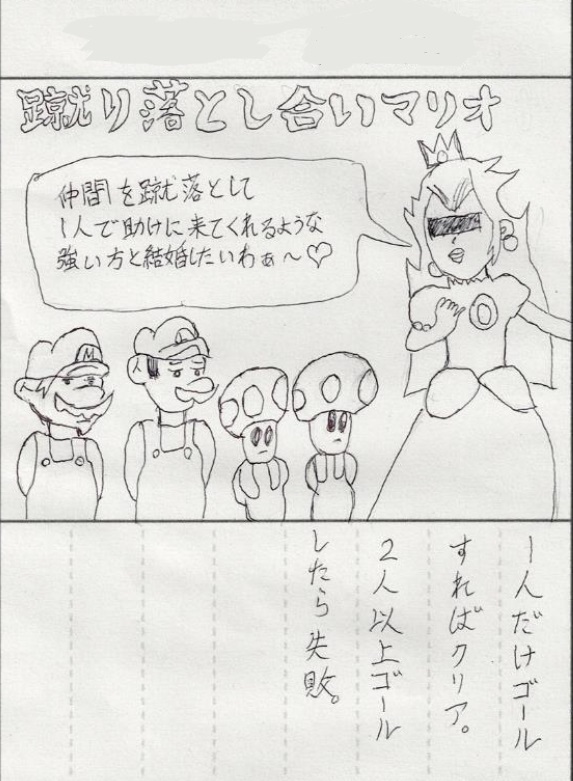 蹴り落とし合いマリオ
仲間を蹴落として
1人で助けに来てくれるような
強い方と結婚したいわぁ～♡
M
1人だけゴール
すればクリア。
2人以上ゴール
したら失敗。